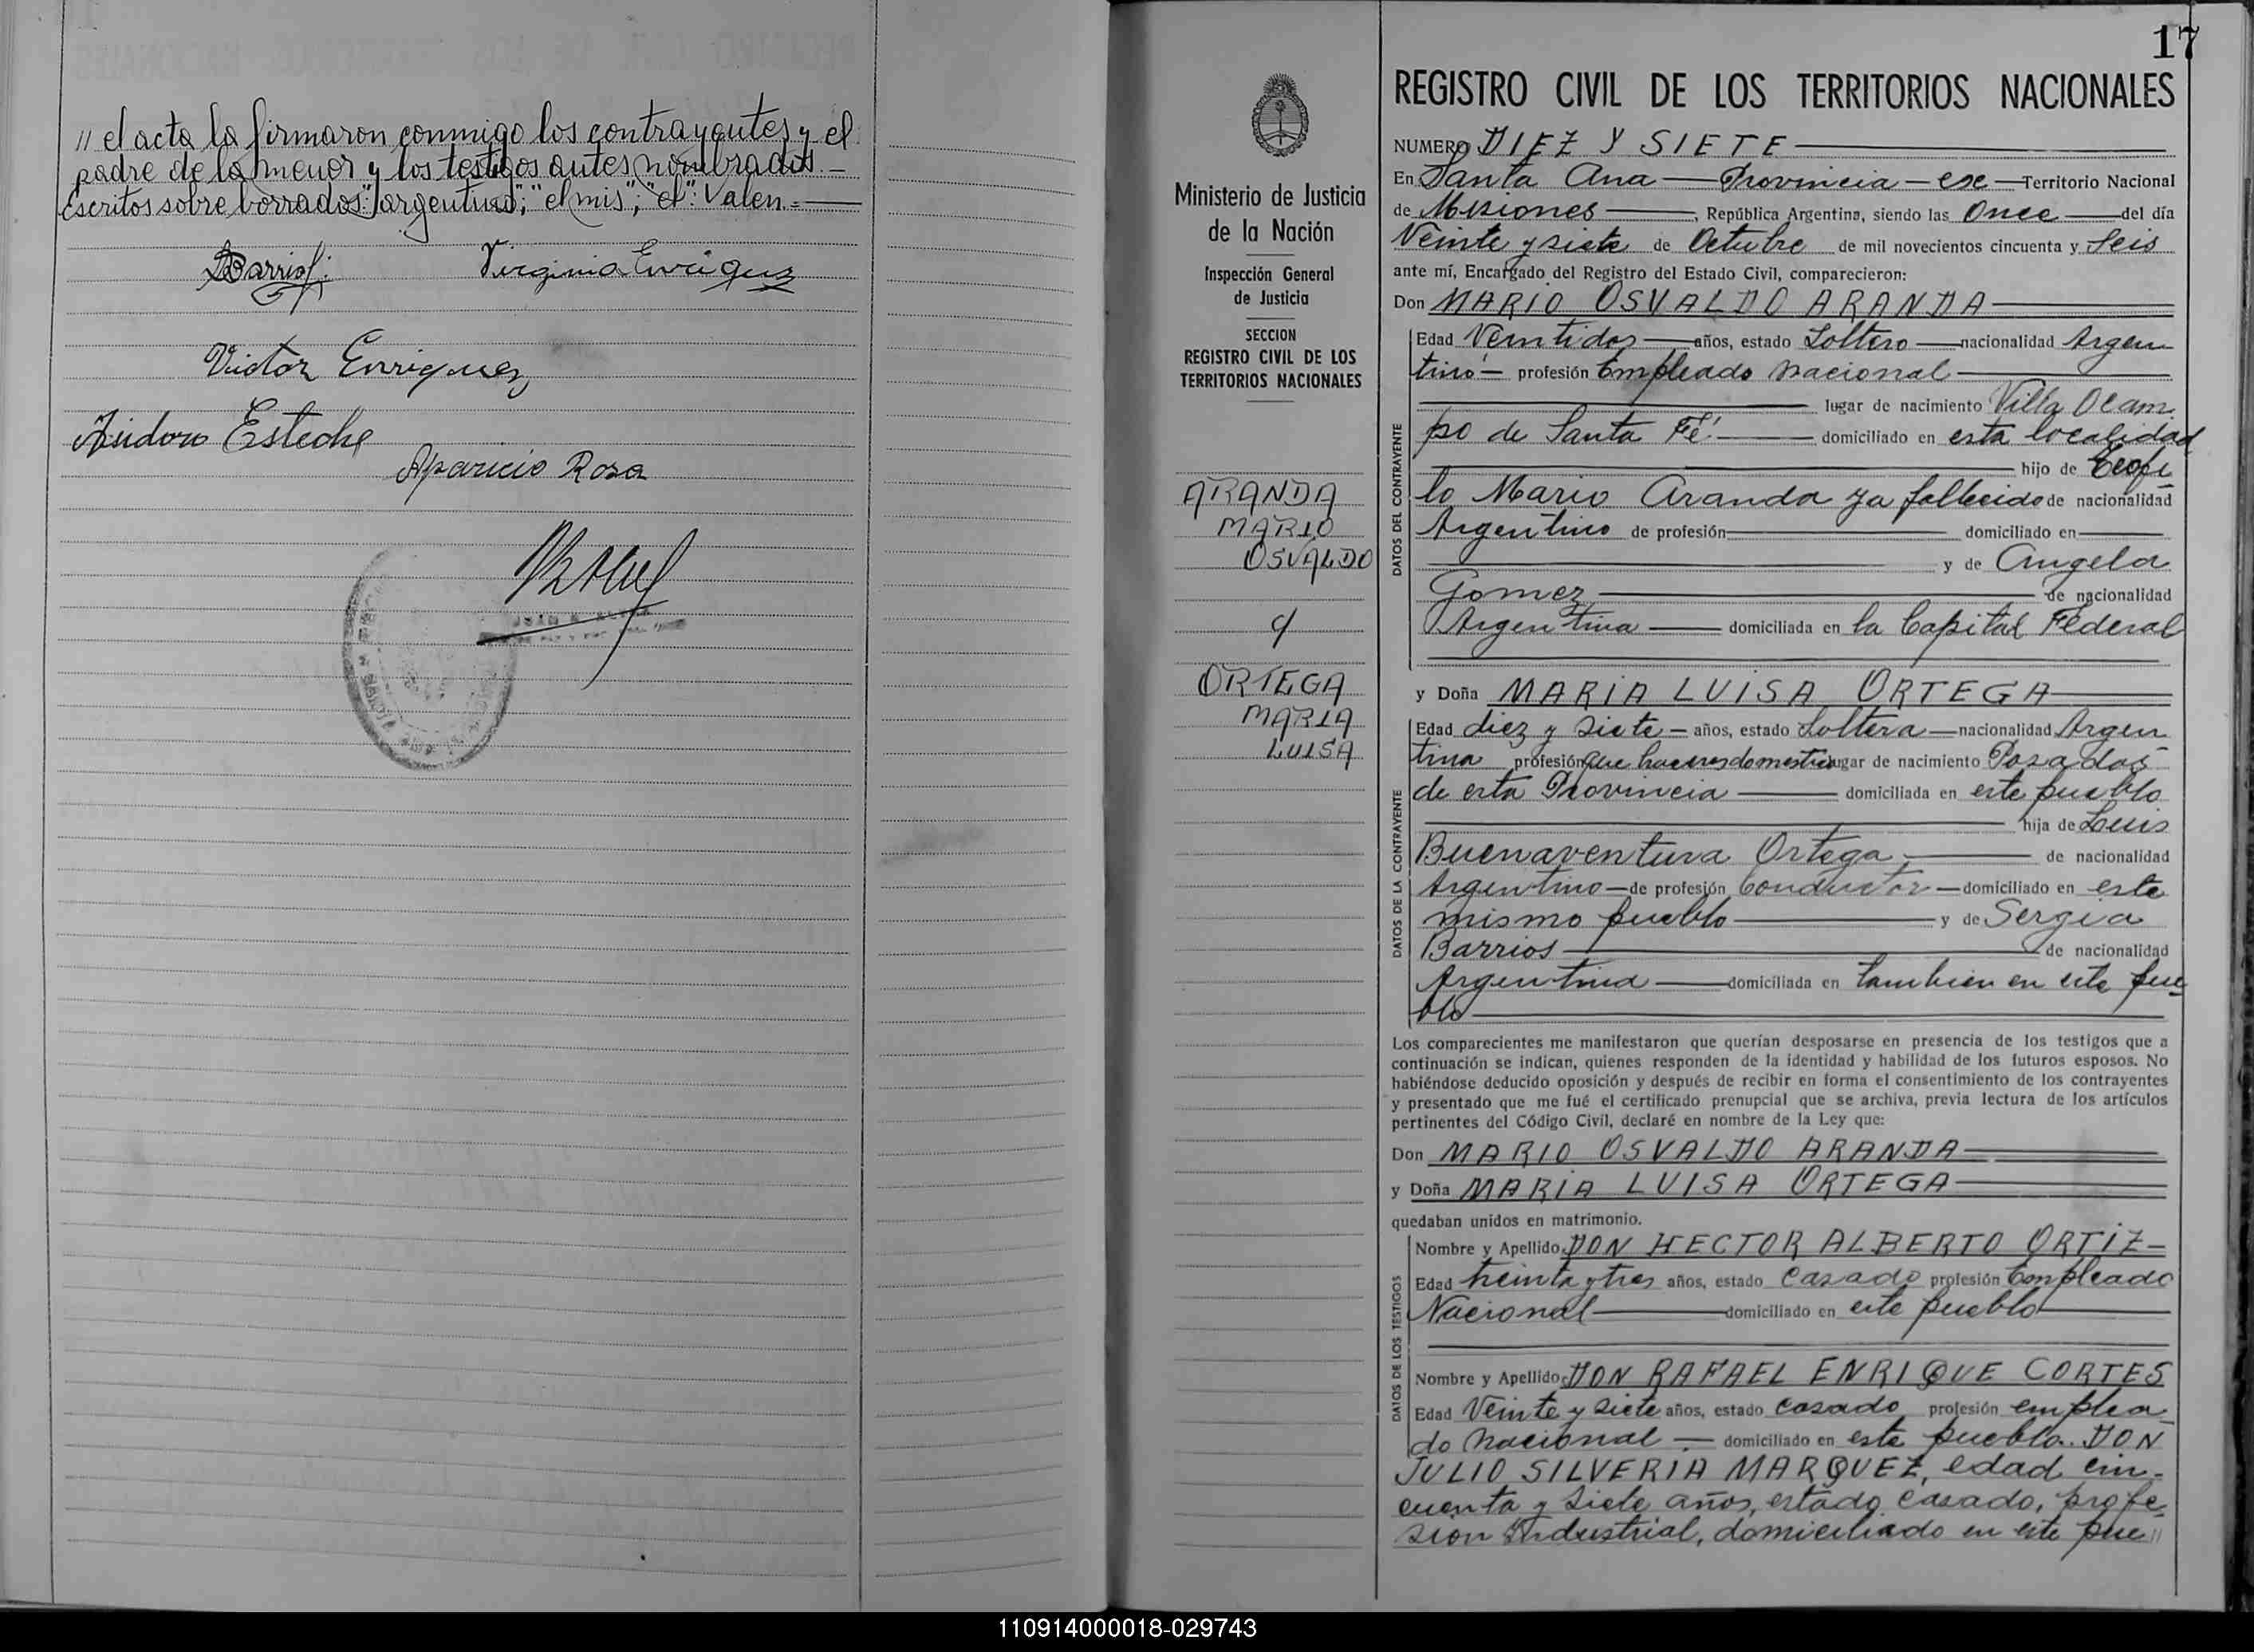 // el acta la firmaron conmigo los contrayentes y el
padre de la menor y los testigos antes nombrados.—
Escritos sobre borrados: "argentino"; "el mis"; "el": Valen.=
Barrios
Virginia Enriquez
Victor Enriquez
Isidoro Esteche
Aparicio Rosa
17
Ministerio de Justicia
de la Nación
Inspección General
de Justicia
SECCION
REGISTRO CIVIL DE LOS
TERRITORIOS NACIONALES
ARANDA
MARIO
OSVALDO
c/
ORTEGA
MARIA
LUISA
REGISTRO CIVIL DE LOS TERRITORIOS NACIONALES
NUMERO DIEZ Y SIETE
En Santa Ana — Provincia — ese — Territorio Nacional
de Misiones, República Argentina, siendo las Once del día
Veinte y siete de Octubre de mil novecientos cincuenta y Seis
ante mí, Encargado del Registro del Estado Civil, comparecieron:
Don MARIO OSVALDO ARANDA
DATOS DEL CONTRAYENTE
Edad Veintidos años, estado Soltero nacionalidad Argen
tino — profesión Empleado Nacional
lugar de nacimiento Villa Ocam
po de Santa Fé domiciliado en esta localidad
hijo de Teofi
lo Mario Aranda ya fallecido de nacionalidad
Argentino de profesión domiciliado en
y de Angela
Gomez de nacionalidad
Argentina domiciliada en la Capital Federal
y Doña MARIA LUISA ORTEGA
DATOS DE LA CONTRAYENTE
Edad diez y siete años, estado Soltera nacionalidad Argen
tina profesión que haceres domestico lugar de nacimiento Posadas
de esta Provincia domiciliada en este pueblo
hija de Luis
Buenaventura Ortega, de nacionalidad
Argentino de profesión Conductor domiciliado en este
mismo pueblo y de Sergia
Barrios de nacionalidad
Argentina domiciliada en tambien en este pue
blo
Los comparecientes me manifestaron que querían desposarse en presencia de los testigos que a
continuación se indican, quienes responden de la identidad y habilidad de los futuros esposos. No
habiéndose deducido oposición y después de recibir en forma el consentimiento de los contrayentes
y presentado que me fué el certificado prenupcial que se archiva, previa lectura de los artículos
pertinentes del Código Civil, declaré en nombre de la Ley que:
Don MARIO OSVALDO ARANDA
y Doña MARIA LUISA ORTEGA
quedaban unidos en matrimonio.
DATOS DE LOS TESTIGOS
Nombre y Apellido DON HECTOR ALBERTO ORTIZ
Edad treinta y tres años, estado Casado profesión Empleado
Nacional domiciliado en este pueblo
Nombre y Apellido DON RAFAEL ENRIQUE CORTES
Edad Veinte y siete años, estado casado profesión emplea
do Nacional — domiciliado en este pueblo. DON
JULIO SILVERIA MARQUEZ, edad cin-
cuenta y siete años, estado casado, profe
sion Industrial, domiciliado en este pue//
110914000018-029743